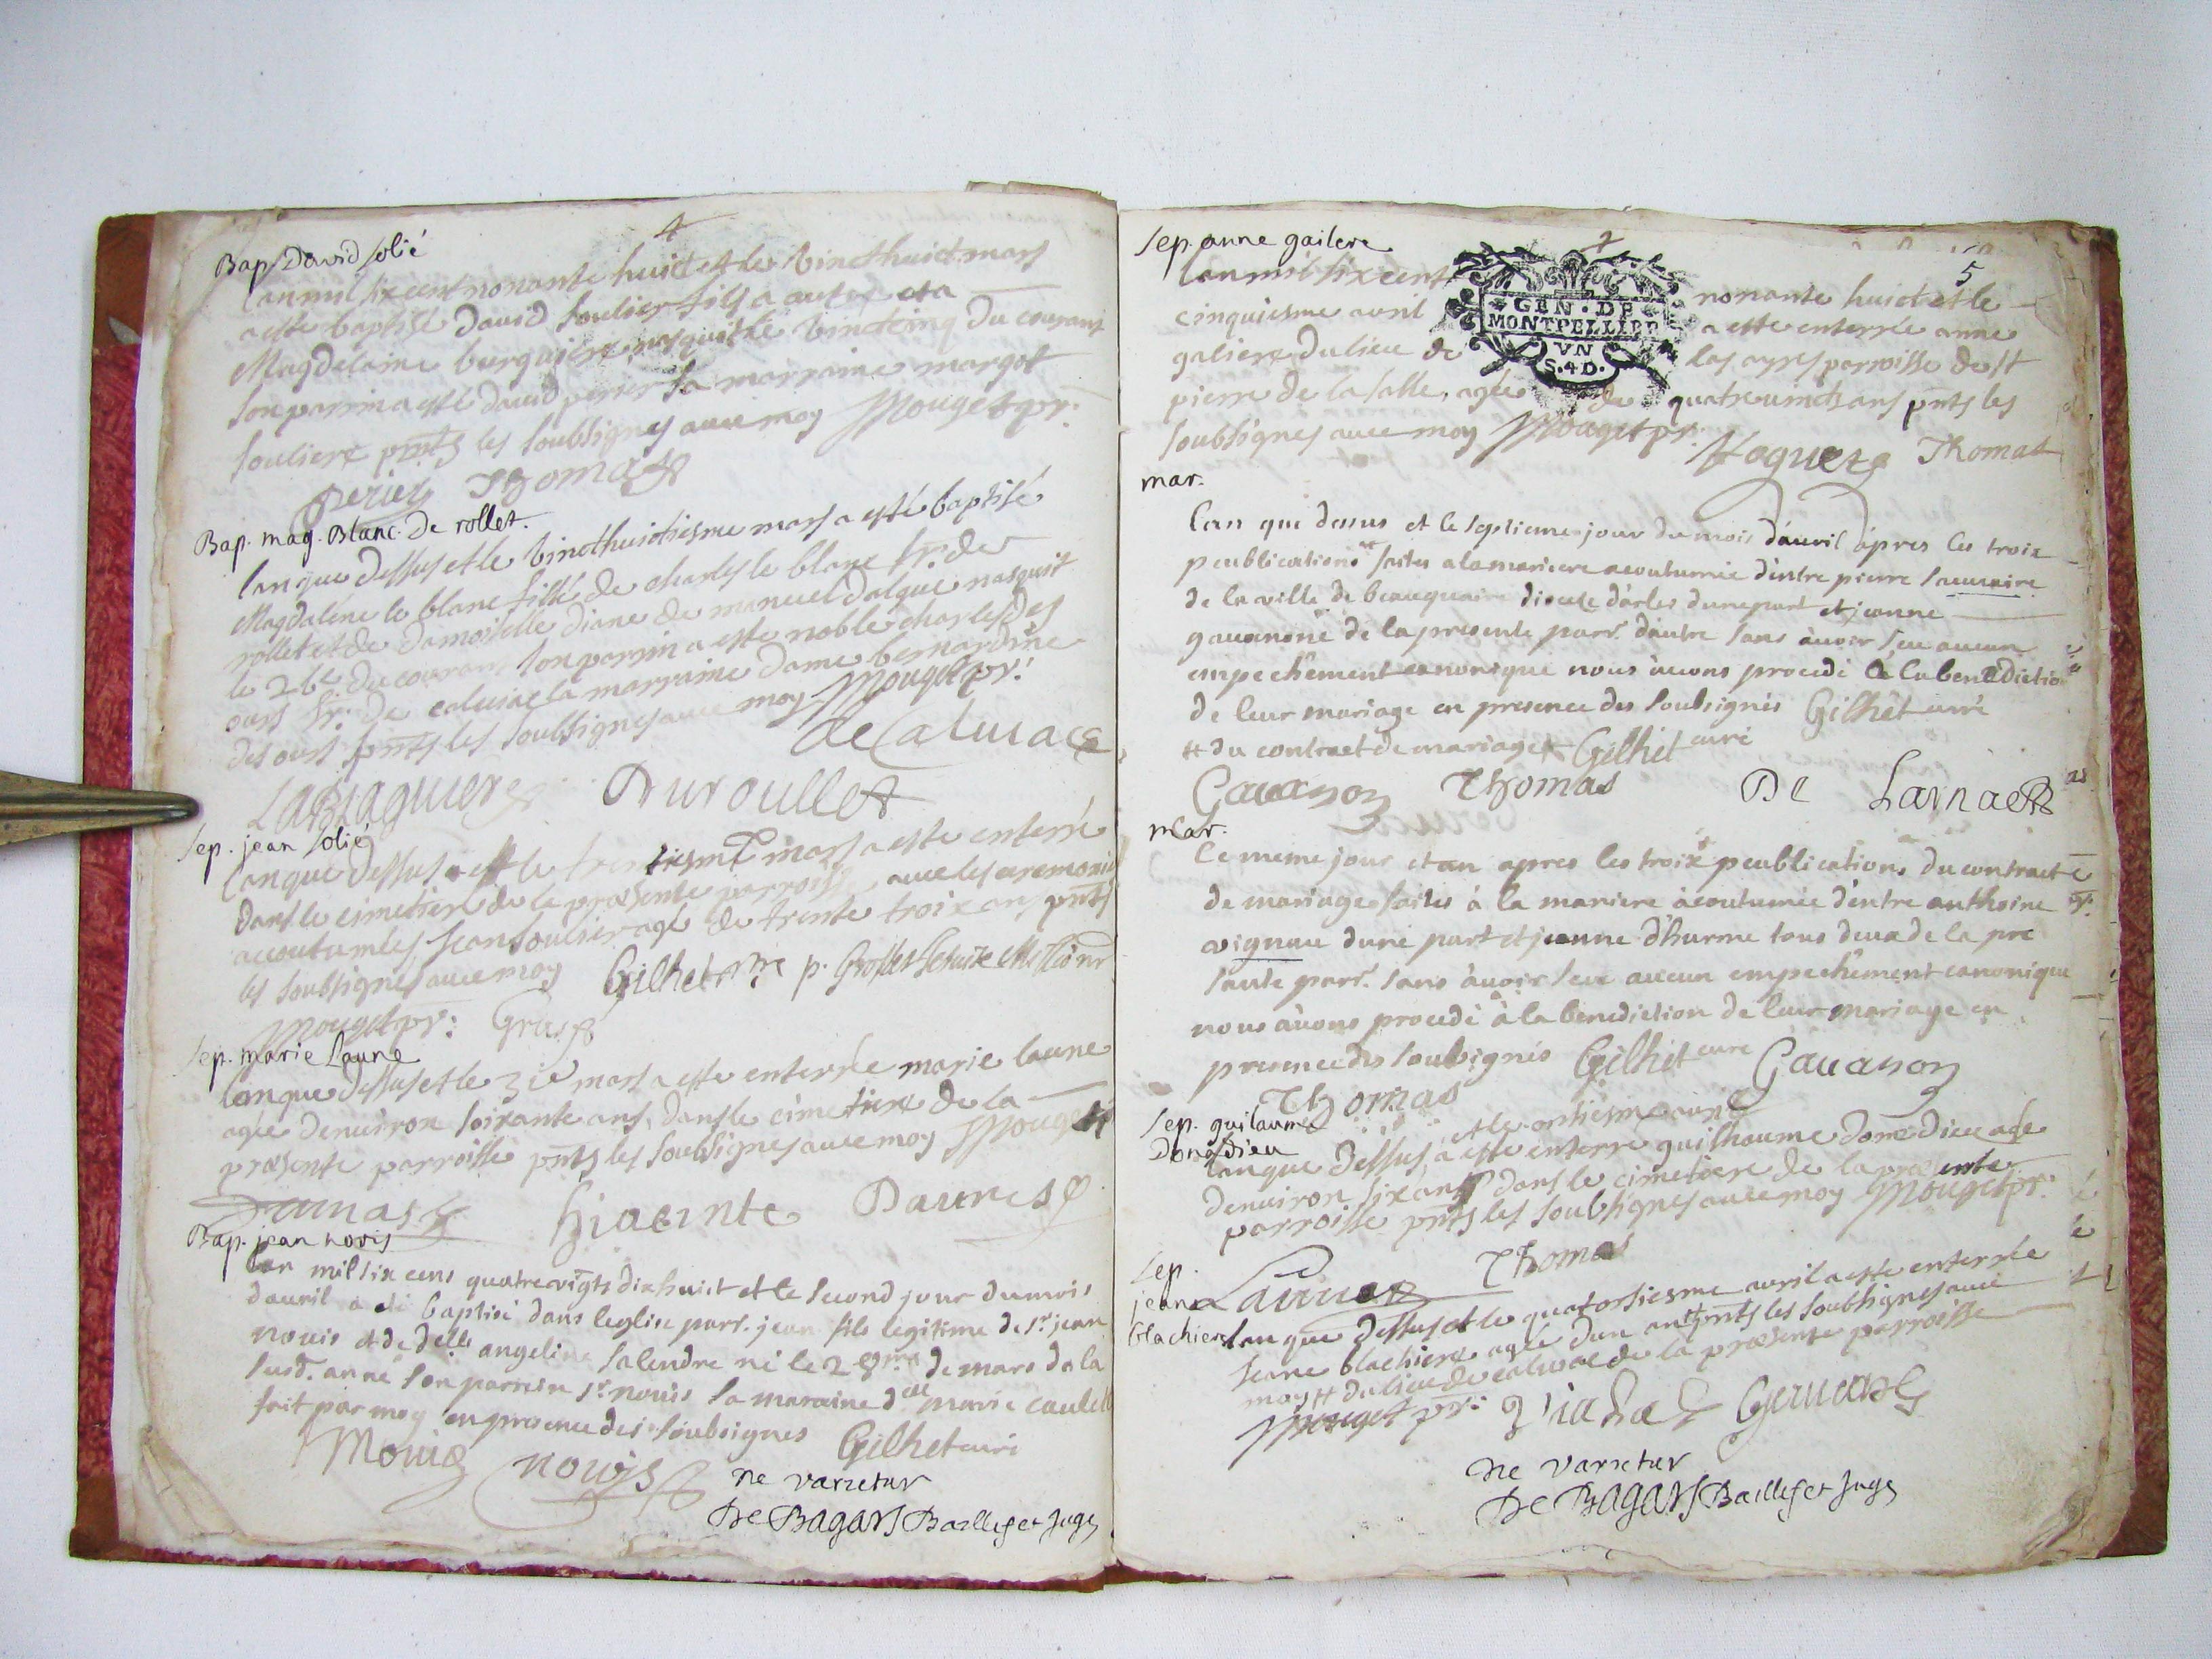 4
Bap David Solié
Lan mil six cent nonante huict et le vinct huict mars
a esté baptisé david soulier fils a autre et a
Magdelaine burguiere nasquit le vinct cinq du courant
son parrin a esté david perier la marraine margot
souliere pnts les soubsignes avec moy Mouget pr.
Perier Thomas
Bap. mag. Blanc. De rollet.
lan que dessus et le vinct huictiesme mars a esté baptisé
Magdaléne le blanc fille de charles le blanc sr. de
rollet et de damoiselle diane de manuel dalgue nasquit
le 26e du courant son parrin a esté noble charles des
ours sr. de calviac la marraine dame bernardine
des ours pnts les soubsignes avec moy Mouget pr.
de Calviac
Lablaquiere Duroullet
Sep. jean Solié
Lan que dessus et le trentiesme mars a este enterré
dans le cimetiere de la præsente parroisse avec les ceremonies
accoutumées Jean soulier agé de trente troix ans pnts
les soubsignes avec moy Gilhet p. Jesuite
Mouget pr. Gras
Sep. marie Laune
Lan que dessus et le 31e mars a este enterrée marie laune
agée denviron soixante ans, dans le cimetiere de la
præsente parroisse pnts les soubsignes avec moy Mouget
hiacinte Daunis
Bap. jean novis
Lan mil six cens quatre vigts dix huict et le second jour du mois
d'auril a été baptisé dans leglise parr. jean fils legitime de sr. jean
novis et de delle angeline salendre né le 28me de mars de la
susd. anné son parrein sr. novis la maraine dlle marie caulet
fait par moy en presence des soubsignes Gilhet curé
Novis novis
ne varietur
De Bagars Baillif et Juge
Sep. anne gailere
5
Lan mil six cent nonante huict et le
GEN. DE MONTPELLIER
VN
S. 4 D.
cinquiesme avril a este enterrée anne
galiere du lieu de las ayres parroisse de st
pierre de la salle, agée de quatre vincts ans pnts les
soubsignes avec moy Mouget pr. Noguere Thomas
mar.
Lan que dessus et le septieme jour du mois d'auril àpres les troix
peublications faites a la maniere acoutumée d'entre pierre sauvaire
de la ville de beauquaire diocese d'arles d'une part et jeanne
gavanone de la presente parr. d'autre sans àvoir seu aucun
empechêment canonique nous àvons procedé à la benediction
de leur mariage en presence des soubsignés Gilhet curé
du contract de mariage Gilhet curé
Gavanon Thomas De Larnac
mar.
Le meme jour et an apres les troix peublications du contract
de mariage faites à la maniere àcoutumée d'entre anthoine
vignau d'une part et jeanne d'hurme tous deux de la pre
sante parr. sans àvoir seu aucun empechêment canonique
nous àvons procedé à la benediction de leur mariage en
presence des soubsignés Gilhet curé Gavanon
Thomas
Sep. guilaume
Donadieu
et le onsiesme avril
lan que dessus a este enterre guilhaume donadieu agé
denviron six ans dans le cimetiere de la præsente
parroisse pnts les soubsignes avec moy Mouget pr.
Thomas
Sep.
jeane
blachiere
lan que dessus et le quatorsiesme avril a este enterrée
Jeane blachiere agée d'un an pnts les soubsignes avec
moy du lieu de calviac de la præsente parroisse
Mouget pr. Gervais
ne varietur
De Bagars Baillif et Juge